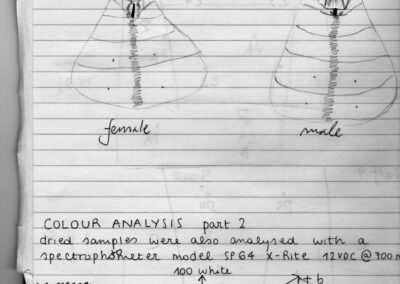 female male
COLOUR ANALYSIS part 2
dried samples were also analysed with a
spectrophotometer model SP64 X-Rite 12VDC @ 700 m
100 white
+ b